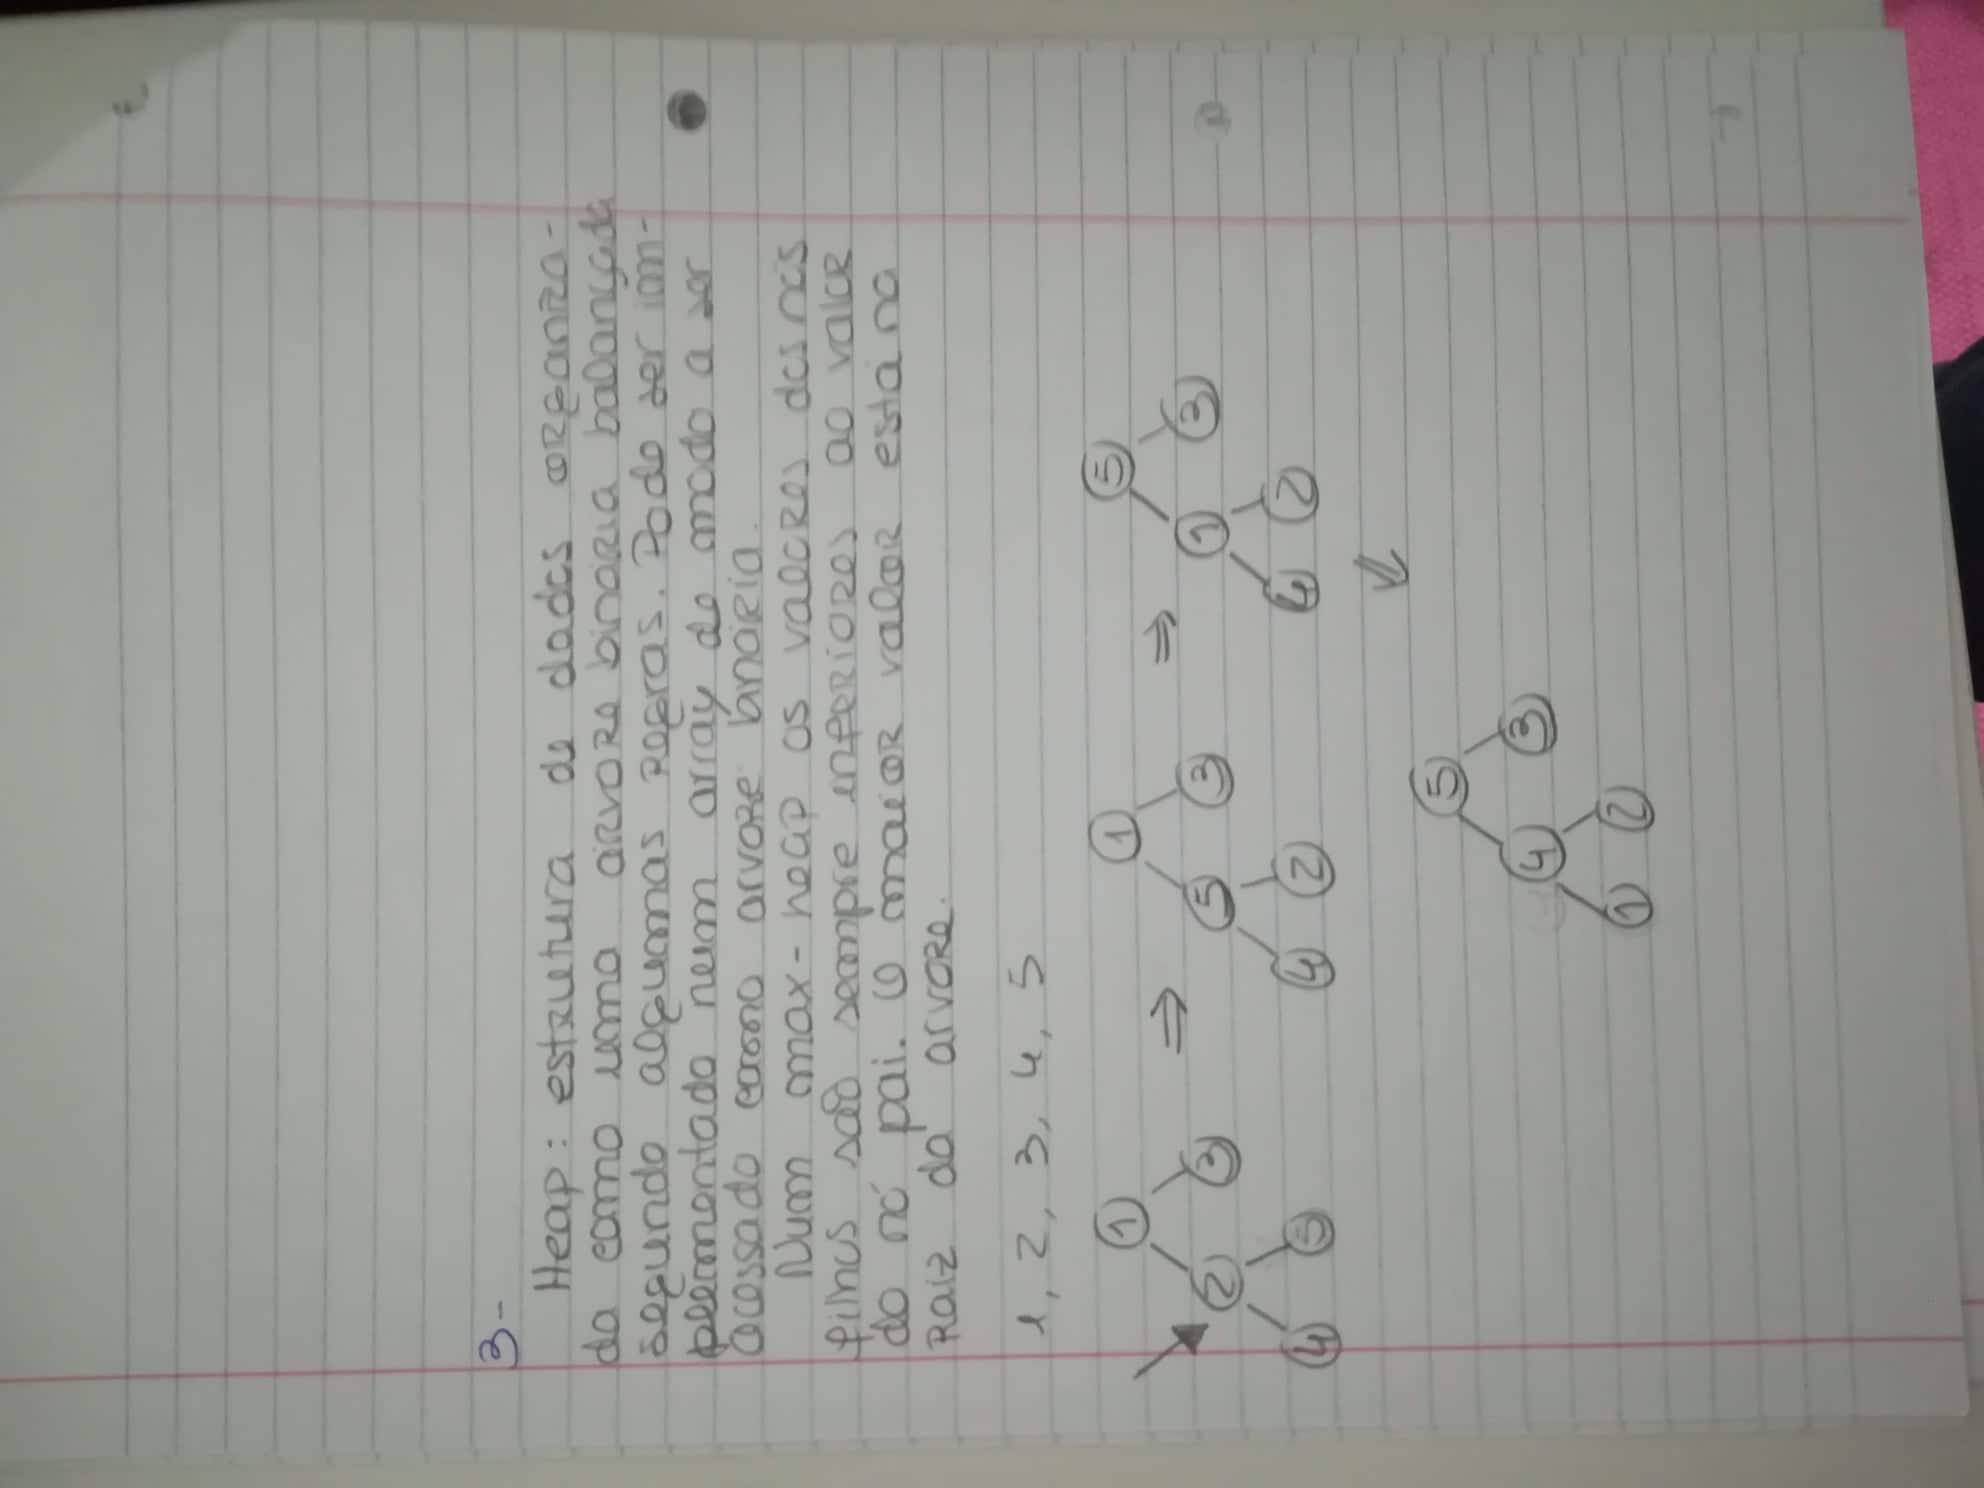 3-
Heap: estrutura de dados organiza-
da como uma árvore binária balançada
segundo algumas regras. Pode ser im-
plementado num array de modo a ser
acessado como arvore binária.
Num max-heap os valores dos nós
filhos são sempre inferiores ao valor
do nó pai. O maior valor está na
raiz da arvore.
1, 2, 3, 4, 5
1 ⇒ 1 ⇒ 5
2 3 5 3 1 3
4 5 4 2 4 2
⇓
5
4 3
1 2